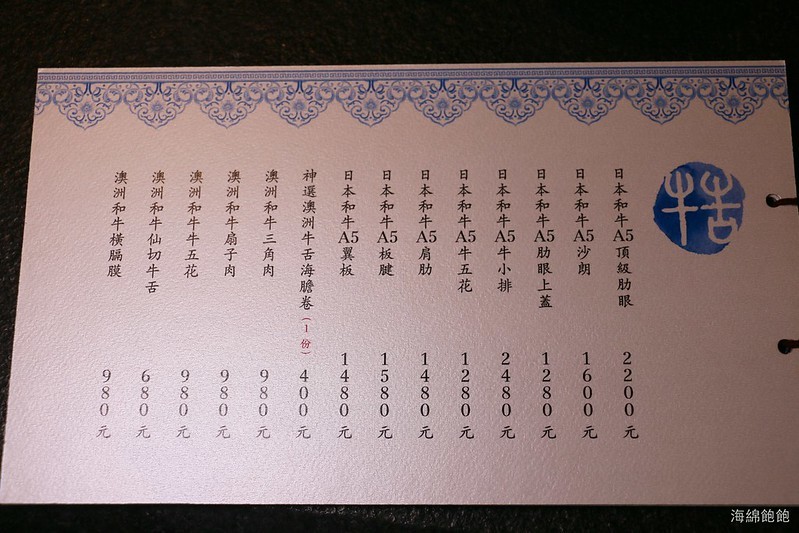 牛舌
日本和牛A5頂級肋眼 2200元
日本和牛A5沙朗 1600元
日本和牛A5肋眼上蓋 1280元
日本和牛A5牛小排 2480元
日本和牛A5牛五花 1280元
日本和牛A5肩肋 1480元
日本和牛A5板腱 1580元
日本和牛A5翼板 1480元
神選澳洲牛舌海膽卷(1份) 400元
澳洲和牛三角肉 980元
澳洲和牛扇子肉 980元
澳洲和牛牛五花 980元
澳洲和牛仙切牛舌 680元
澳洲和牛橫膈膜 980元
海綿飽飽